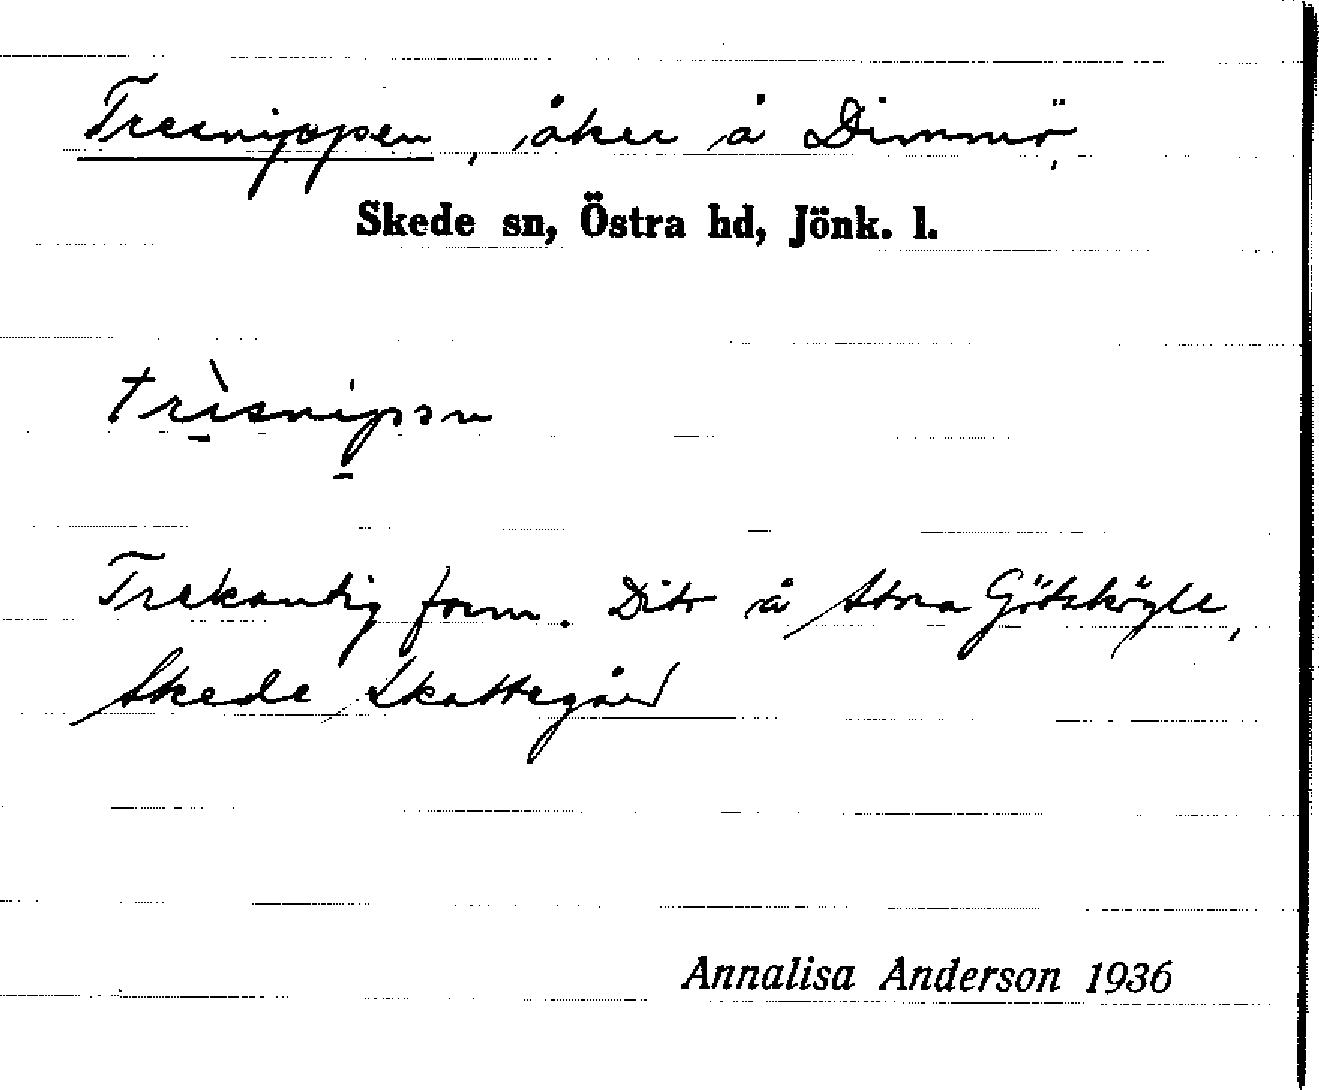 Tresnippen, åker å Dimmö,
Skede sn, Östra hd, Jönk. l.
trìsnipən
Trekantig form. Dito å Stora Götsbögle,
Skede Skattegård
Annalisa Anderson 1936